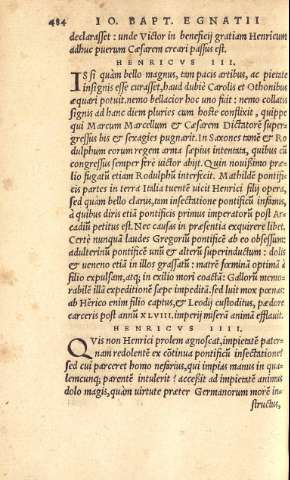 484 IO. BAPT. EGNATII
declarasset: unde Victor in beneficij gratiam Henricum
adhuc puerum Cæsarem creari passus est.
HENRICVS III.
IS si quàm bello magnus, tam pacis artibus, ac pietate
insignis esse curasset, haud dubiè Carolis et Othonibus
æquari potuit. nemo bellacior hoc uno fuit: nemo collatis
signis ad hanc diem pluries cum hoste conflixit, quippe
qui Marcum Marcellum & Cæsarem Dictatorē super
gressus bis & sexagies pugnarit. In Saxones tamē & Ro
dulphum eorum regem arma sæpius intentata, quibus cū
congressus semper ferè victor abijt. Quin nouissimo præ
lio fugatū etiam Rodulphū interficit. Mathildē pontifi
cis partes in terra Italia tuente vicit Henrici filij opera,
sed quàm bello clarus, tam insectatione pontificū infamis,
à quibus diris etiā pontificis primus imperatorū post Ar
cadiū petitus est. Nec causas in præsentia exquirere libet.
Certè nunquā laudes Gregoriū pontificē ab eo obsessum:
adulterinū pontificē unū & alterū superinductum: dolis
& ueneno etiā in illos grassatū: matrē fœminā optimā à
filio expulsam, atq; in exilio mori coactā: Gallorū memo-
rabilē illā expeditionē sæpe impeditā. sed luit mox pœnas:
ab Hērico enim filio captus, & Leodij custoditus, pædore
carceris post annū XLVIII. imperij miserā animā efflauit.
HENRICVS IIII.
QVis non Henrici prolem agnoscat, impietatē pater-
nam redolentē ex cōtinua pontificū insectatione?
sed cui parceret homo nefarius, qui impias manus in qua-
lemcunq; parentē intulerit? accessit ad impietatē animus
dolo magis, quàm virtute præter Germanorum morē in-
structus,